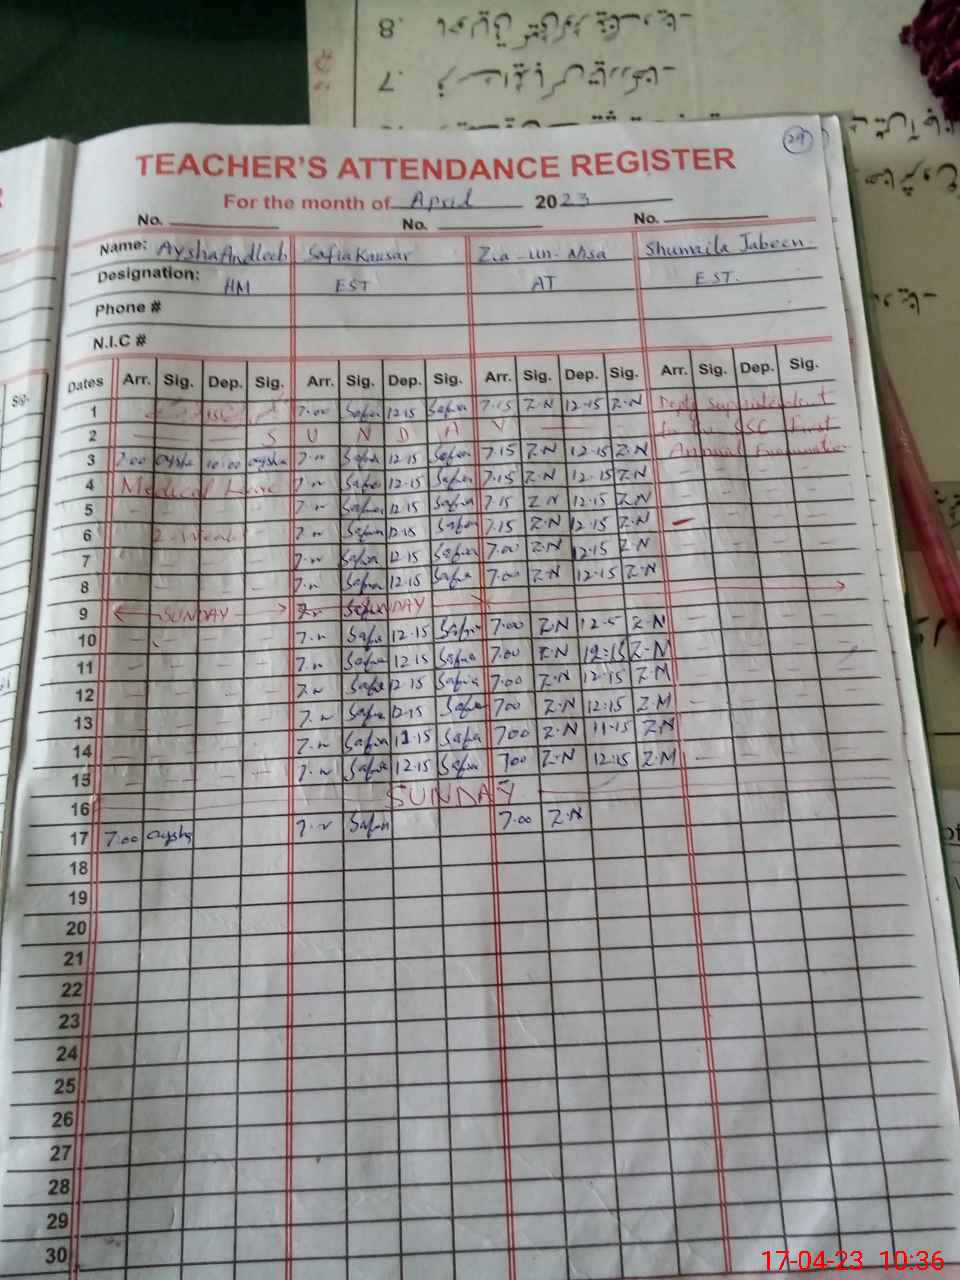 29
TEACHER'S ATTENDANCE REGISTER
For the month of April 2023
No. No. No.
Name: Aysha Andleeb Safia Kausar Zia-un-Nisa Shumaila Jabeen
Designation: HM EST AT EST.
Phone #
N.I.C #
Dates Arr. Sig. Dep. Sig. Arr. Sig. Dep. Sig. Arr. Sig. Dep. Sig. Arr. Sig. Dep. Sig.
1 7.00 Safia 12.15 Safia 7.15 Z.N 12.15 Z.N
2 SUNDAY SSC First
3 7.00 Aysha 10:00 Aysha 7.n Safia 12.15 Safia 7.15 Z.N 12.15 Z.N Annual Examination
4 Medical Leave 7.n Safia 12.15 Safia 7.15 Z.N 12.15 Z.N
5 7.n Safia 12.15 Safia 7.15 Z.N 12.15 Z.N
6 2-Week 7.n Safia 12.15 Safia 7.15 Z.N 12.15 Z.N
7 7.n Safia 12.15 Safia 7.00 Z.N 12.15 Z.N
8 7.n Safia 12.15 Safia 7.00 Z.N 12.15 Z.N
9 SUNDAY SUNDAY
10 7.n Safia 12.15 Safia 7.00 Z.N 12.5 Z.N
11 7.n Safia 12.15 Safia 7.00 Z.N 12:15 Z.N
12 7.n Safia 12.15 Safia 7.00 Z.N 12.15 Z.M
13 7.n Safia 12.15 Safia 700 Z.N 12.15 Z.M
14 7.n Safia 12.15 Safia 700 Z.N 11.15 Z.N
15 7.n Safia 12.15 Safia 700 Z.N 12.15 Z.M
16 SUNDAY
17 7:00 Aysha 7.n Safia 7.00 Z.N
18
19
20
21
22
23
24
25
26
27
28
29
30
17-04-23 10:36